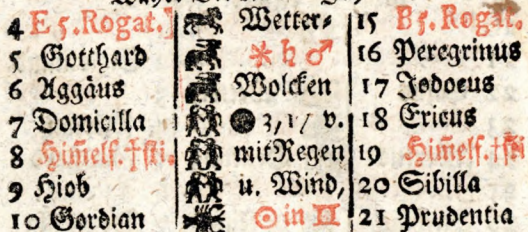 4 E 5. Rogat. Wetter- 15 B 5. Rogat.
5 Gotthard ⚹ ♄ ♂ 16 Peregrinus
6 Aggäus Wolcken 17 Jodocus
7 Domicilla ● 3, 17 v. 18 Ericus
8 Him̃elf. Chsti. mit Regen 19 Him̃elf.
9 Hiob u. Wind, 20 Sibilla
10 Gordian ☉ in ♊ 21 Prudentia